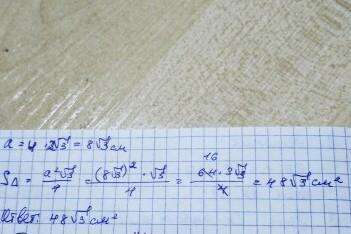 a = 4 · 2√3 = 8√3 см
16
S△ = a²√3/4 = (8√3)² · √3/4 = 64 · 3√3/4 = 48√3 см²
Ответ: 48√3 см²